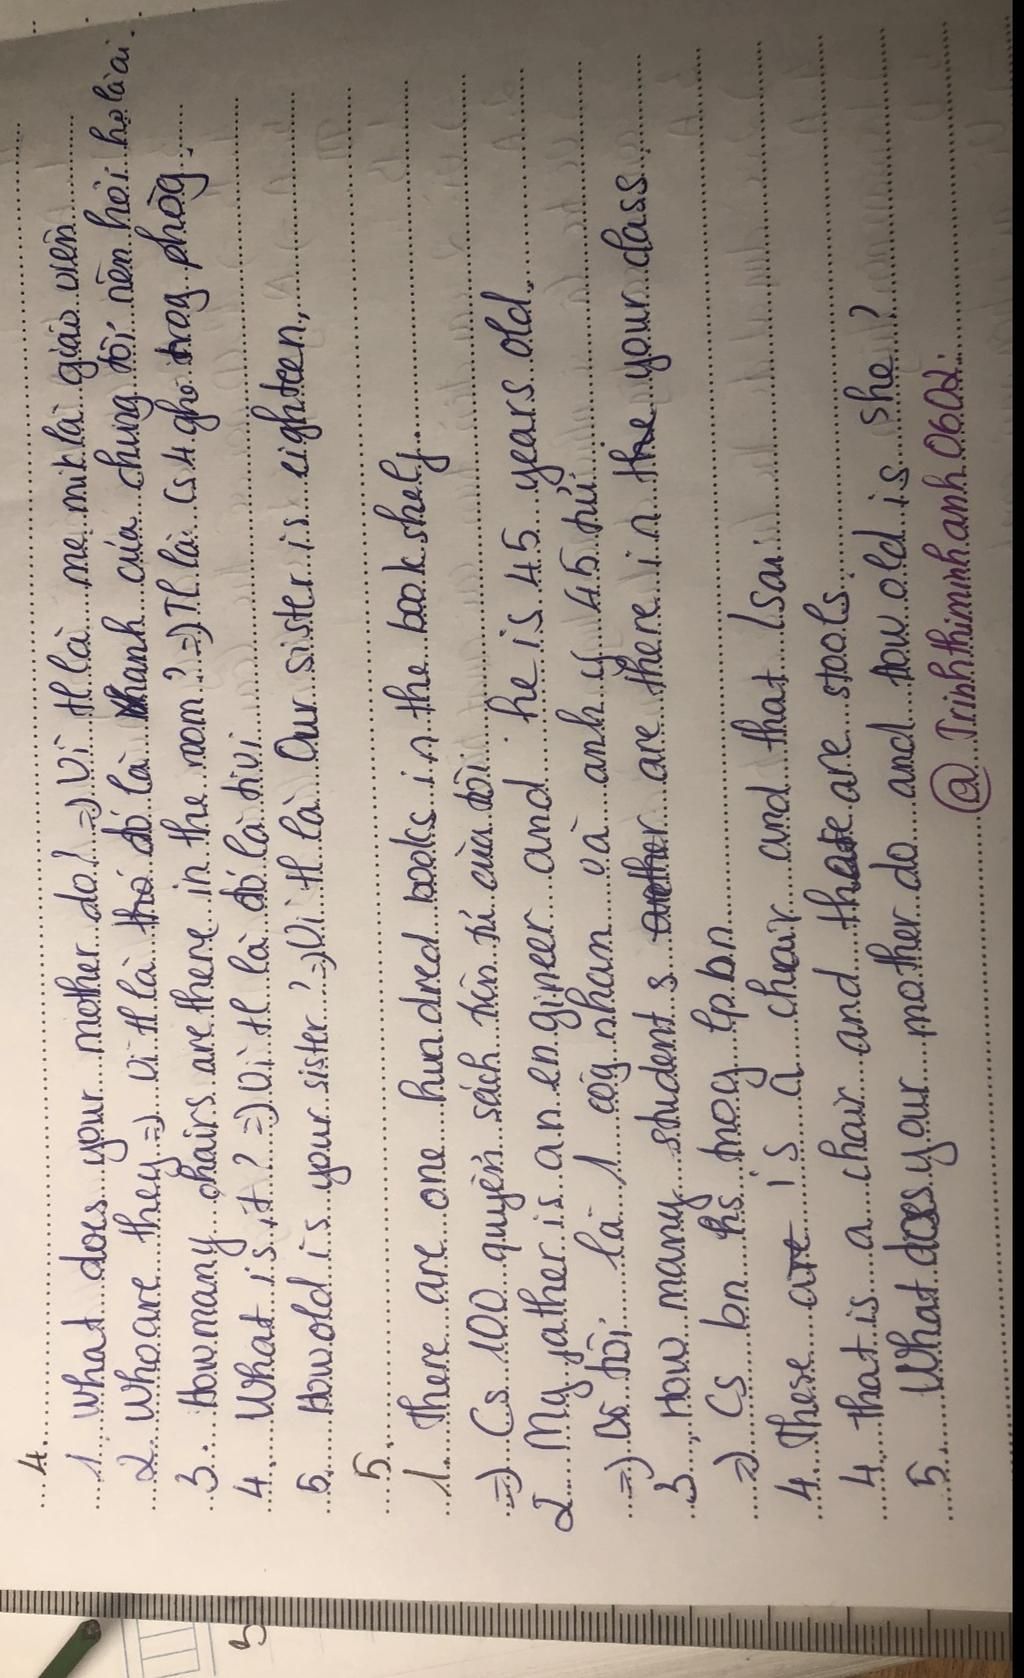 4.
1. What does your mother do? => Vì tl là mẹ mik là giáo viên
2 Who are they => vì tl là thó đó là khanh của chung tôi nên hỏi họ là ai.
3. How many chairs are there in the room? => Tl là cs 4 ghê trog phòg.
4. What is it? => Vì tl là đó là tivi
5. How old is your sister? => Vì tl là Our sister is eighteen,
5.
1. There are one hundred books in the bookshelf.
=> Cs 100 quyển sách trên tủ của tôi
2 My father is an engineer and he is 45 years old.
=> Bố tôi là 1 côg nham và anh ý 45 tủi
3. How many students are there in the your class.
=> Cs bn hs trog lp bn
4. These are is a chair and that Isai
4. that is a chair and that are stools.
5. What does your mother do and how old is she?
@ Trinhthiminhanh0602.
3